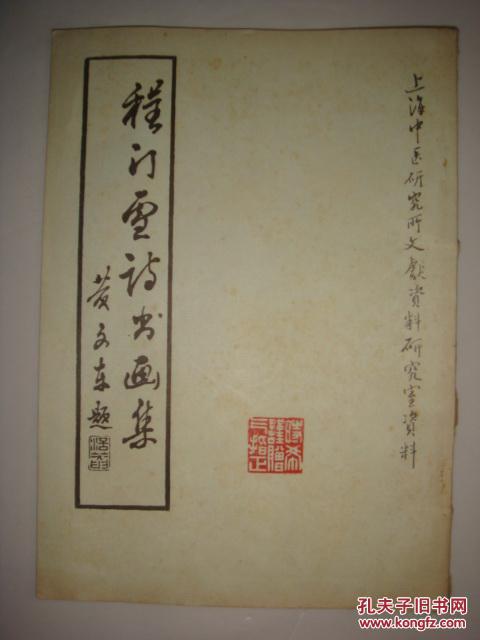 上海中医研究所文献資料研究室資料
程门雪詩书画集
黄文东题
孔夫子旧书网
kongfz.com